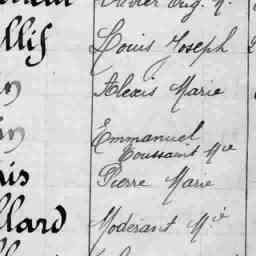 Xavier Eug. M.
llis Louis Joseph
in Alexis Marie
in Emmanuel
Toussaint Mie
is Pierre Marie
llard Modérant M.ie